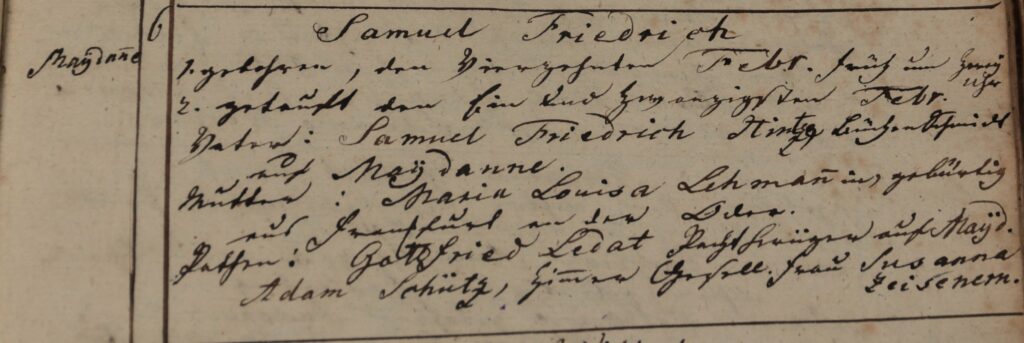 6
Samuel Friedrich
Maydanne
1. gebohren, den Vierzehnten Febr. früh um Zwey Uhr
2. getauft den Ein und Zwanzigsten Febr.
Vater: Samuel Friedrich Hintze Büchsenschmidt
auf Maydanne.
Mutter: Maria Louisa Lehmannin, gebürtig
aus Frankfurt an der Oder.
Pathen: Gottfried Ledat Pachtkrüger auf Mayd.
Adam Schütz, Zimmer Gesell. Frau Susanna
Zeisenern.